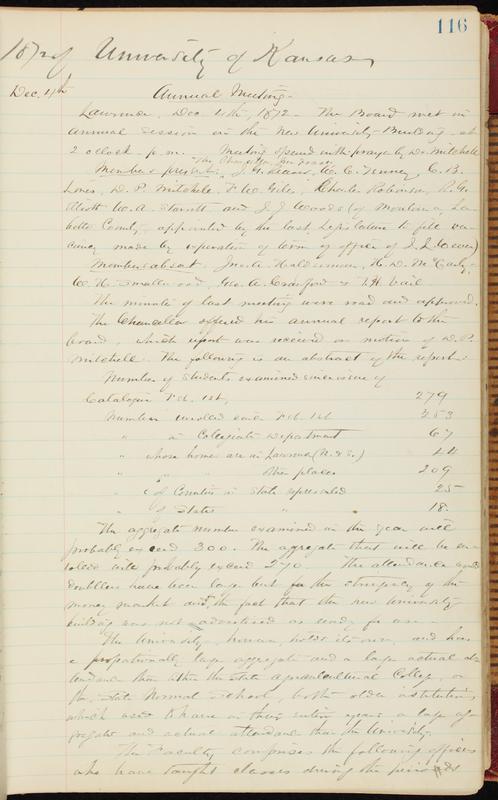 116
1872 University of Kansas
Dec. 4th Annual Meeting.
Lawrence, Dec 4th, 1872 - The Board met in
annual session in the New University Building at
2 o'clock p.m. Meeting opened with prayer by Dr. Mitchell
The Chancellor, Gen Fraser
Members present, W. C. Tenney C. B.
Lines, D. P. Mitchell F. W. Giles, Charles Robinson, R. G.
Elliott W. A. Starrett and J. J. Woods (of Montana, La-
bette County, appointed by the last Legislature to fill va-
cancy made by expiration of term of office of
Members absent. Halderman, N. D. McCarty,
W. H. Smallwood, Geo. A. Crawford & T. H. Vail
The minutes of last meeting were read and approved.
The Chancellor offered his annual report to the
board, which report was received on motion of D. P.
Mitchell. The following is an abstract of the report.
Number of students examined since issue of
Catalogue Feb. 1st, 279
Number enrolled since Feb. 1st 253
" in Collegiate Department 67
" whose homes are in Lawrence 44
" " Other places 209
" of Counties in State represented 25
" of States " 18
The aggregate number examined in the year will
probably exceed 300. The aggregate that will be en-
rolled will probably exceed 270. The attendance would
doubtless have been larger but for the stringency of the
money market and the fact that the new University
building was not advertised as ready for use.
The University, however holds its own, and has
a proportionally large aggregate and a large actual at-
tendance than either the State Agricultural College, or
the State Normal School, both older institutions,
which used to have in their entire years a large ag-
gregate and actual attendance than the University.
The Faculty comprises the following officers
who have taught classes during the period